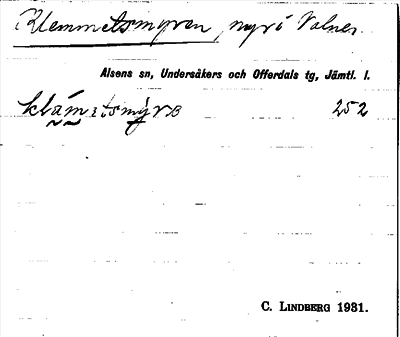 Klemmetsmyren, myr i Valne.
Alsens sn, Undersåkers och Offerdals tg, Jämtl. l.
252
C. LINDBERG 1931.